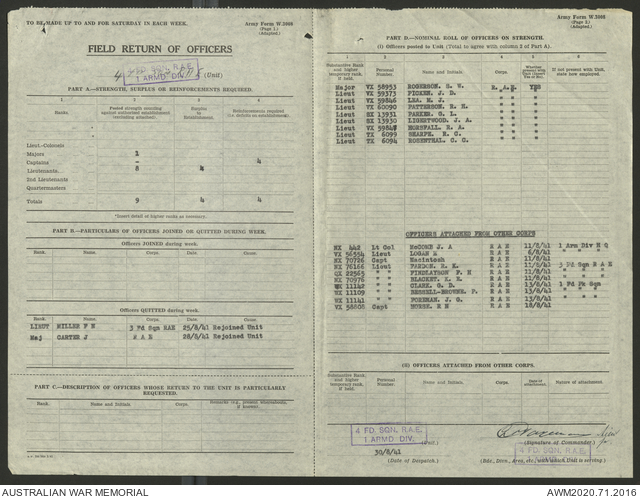 TO BE MADE UP TO AND FOR SATURDAY IN EACH WEEK.
Army Form W.3008
(Page 1.)
(Adapted.)
FIELD RETURN OF OFFICERS
4 FD. SQN. R.A.E.
1 ARMD DIV.
(Unit)
PART A.—STRENGTH, SURPLUS OR REINFORCEMENTS REQUIRED.
1 2 3 4
Ranks. Posted strength counting against authorized establishment (excluding attached). Surplus to Establishment. Reinforcements required (i.e. deficits on establishment).
Lieut.-Colonels
Majors 1
Captains — 4
Lieutenants 8 4
2nd Lieutenants
Quartermasters
Totals 9 4 4
*Insert detail of higher ranks as necessary.
PART B.—PARTICULARS OF OFFICERS JOINED OR QUITTED DURING WEEK.
Officers JOINED during week.
Rank. Name and Initials. Corps. Date. Cause.
Officers QUITTED during week.
Rank. Name and Initials. Corps. Date. Cause.
LIEUT MILLER F N 3 Fd Sqn RAE 25/8/41 Rejoined Unit
Maj CARTER J R A E 28/8/41 Rejoined Unit
PART C.—DESCRIPTION OF OFFICERS WHOSE RETURN TO THE UNIT IS PARTICULARLY REQUESTED.
Rank. Name and Initials. Corps. Remarks (e.g., present whereabouts, if known).
Army Form W.3008
(Page 2.)
(Adapted.)
PART D.—NOMINAL ROLL OF OFFICERS ON STRENGTH.
(i) Officers posted to Unit (Total to agree with column 2 of Part A).
1 2 3 4 5 6
Substantive Rank and higher temporary rank, if held. Personal Number. Name and Initials. Corps. Whether present with Unit (Insert Yes or No). If not present with Unit, state how employed.
Major VX 58953 ROBERSON. S. W. R. A. E. YES
Lieut VX 59373 J. D. " " "
Lieut VX 59846 LEA. M. J. " " "
Lieut VX 60090 PATTERSON. R. H. " " "
Lieut SX 13931 PARKER. G. L. " " "
Lieut SX 13930 LIGERTWOOD. J. A. " " "
Lieut VX HORSFALL. R. A. " " "
Lieut TX 6099 SHARPE. R. G. " " "
Lieut TX 6094 ROSENTHAL. C. G. " " "
OFFICERS ATTACHED FROM OTHER CORPS
NX 442 Lt Col McCOMB J. A R A E 11/8/41 1 Arm Div H Q
VX 56554 Lieut LOGAN R A E 6/8/41 " " "
NX 70726 Capt McIntosh R A E 11/8/41 " " "
NX 76166 Lieut PARDON. R. K. R A E 11/8/41 3 Fd Sqn R A E
QX 22563 " FINDLAYSON F. H R A E 13/8/41 " " "
NX 70976 " BLACKET. R A E 11/8/41 " " "
" CLARK. G. D. R A E 13/8/41 1 Fd Pk Sqn
UX 11109 " P. R A E 13/8/41 " " "
UX 11141 " FOREMAN. J. G. R A E 11/8/41
VX 58808 Capt MORSE. R N R A E 18/8/41
(ii) OFFICERS ATTACHED FROM OTHER CORPS.
Substantive Rank and higher temporary rank, if held. Personal Number. Name and Initials. Corps. Date of attachment. Nature of attachment.
4 FD. SQN. R.A.E.
1 ARMD. DIV.
(Unit.)
(Signature of Commander.)
30/8/41
(Date of Despatch.)
4 FD. SQN. R.A.E.
(Bde., Divn., Area, etc., with which Unit is serving.)
AUSTRALIAN WAR MEMORIAL
AWM2020.71.2016